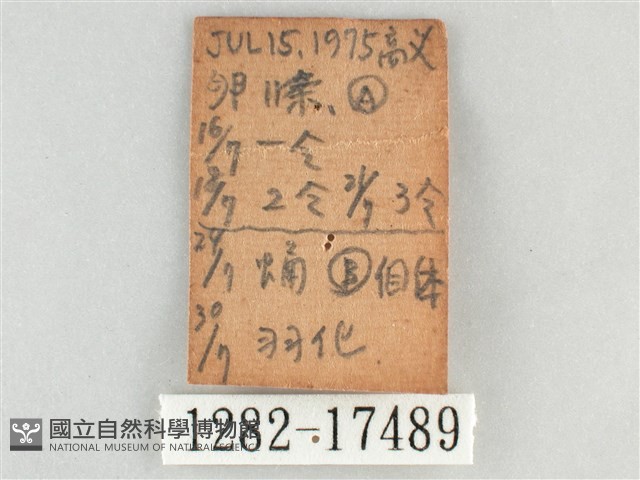 JUL15, 1975 高义
卵 11 A
16/7 一令
18/7 2令 21/7 3令
24/7 蛹 B 個体
30/7 羽化
1282-17489
國立自然科學博物館
NATIONAL MUSEUM OF NATURAL SCIENCE